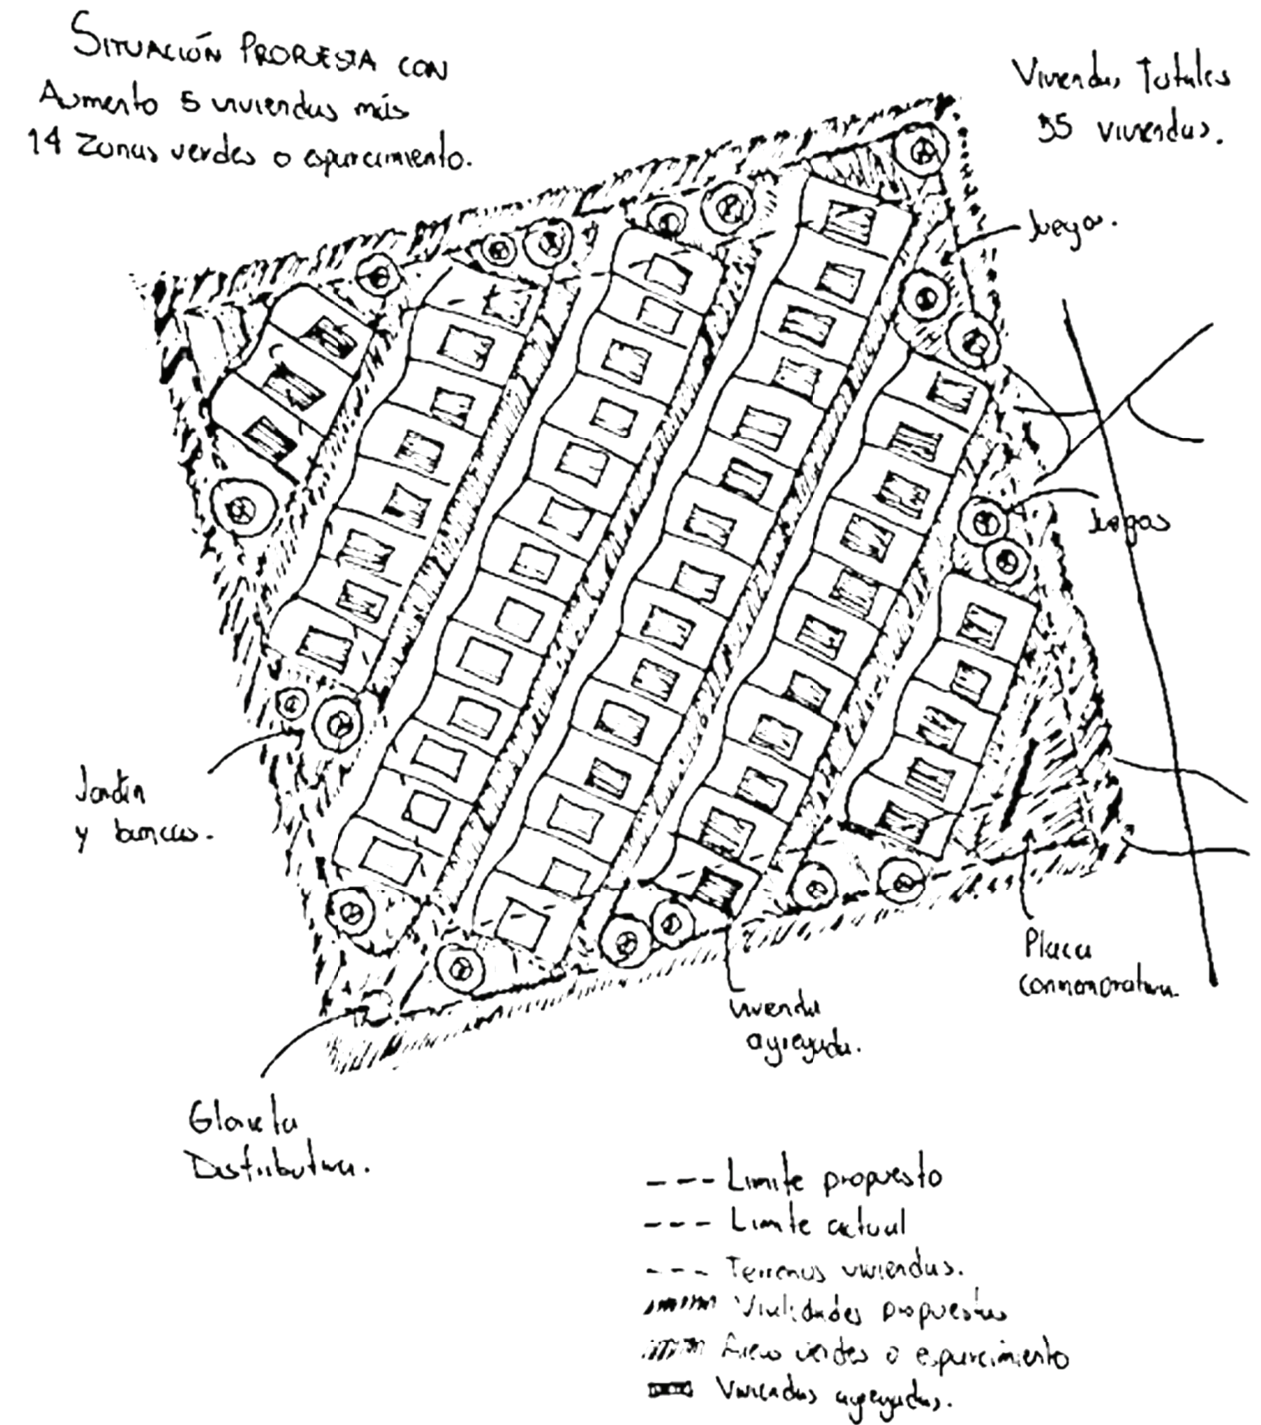 SITUACIÓN PROPUESTA CON
Aumento 5 viviendas más
14 zonas verdes o esparcimiento.
Viviendas Totales
55 viviendas.
Juegos.
Juegos
Jardín
y bancas.
Placa
conmemorativa.
vivienda
agregada.
Glorieta
Distributiva.
Limite propuesto
Limite actual
Terrenos viviendas.
Vialidades propuestas
Areas verdes o esparcimiento
Viviendas agregadas.